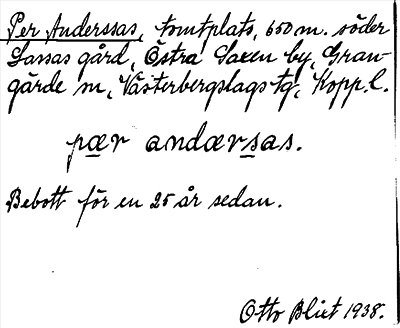 Per Anderssas, tomtplats, 650 m. söder
Lassas gård, Östra Saxen by, Gran-
gärde sn, Västerbergslags tg, Kopp. l.
pær andærsas.
Bebott för en 25 år sedan.
Otto Blixt 1938.